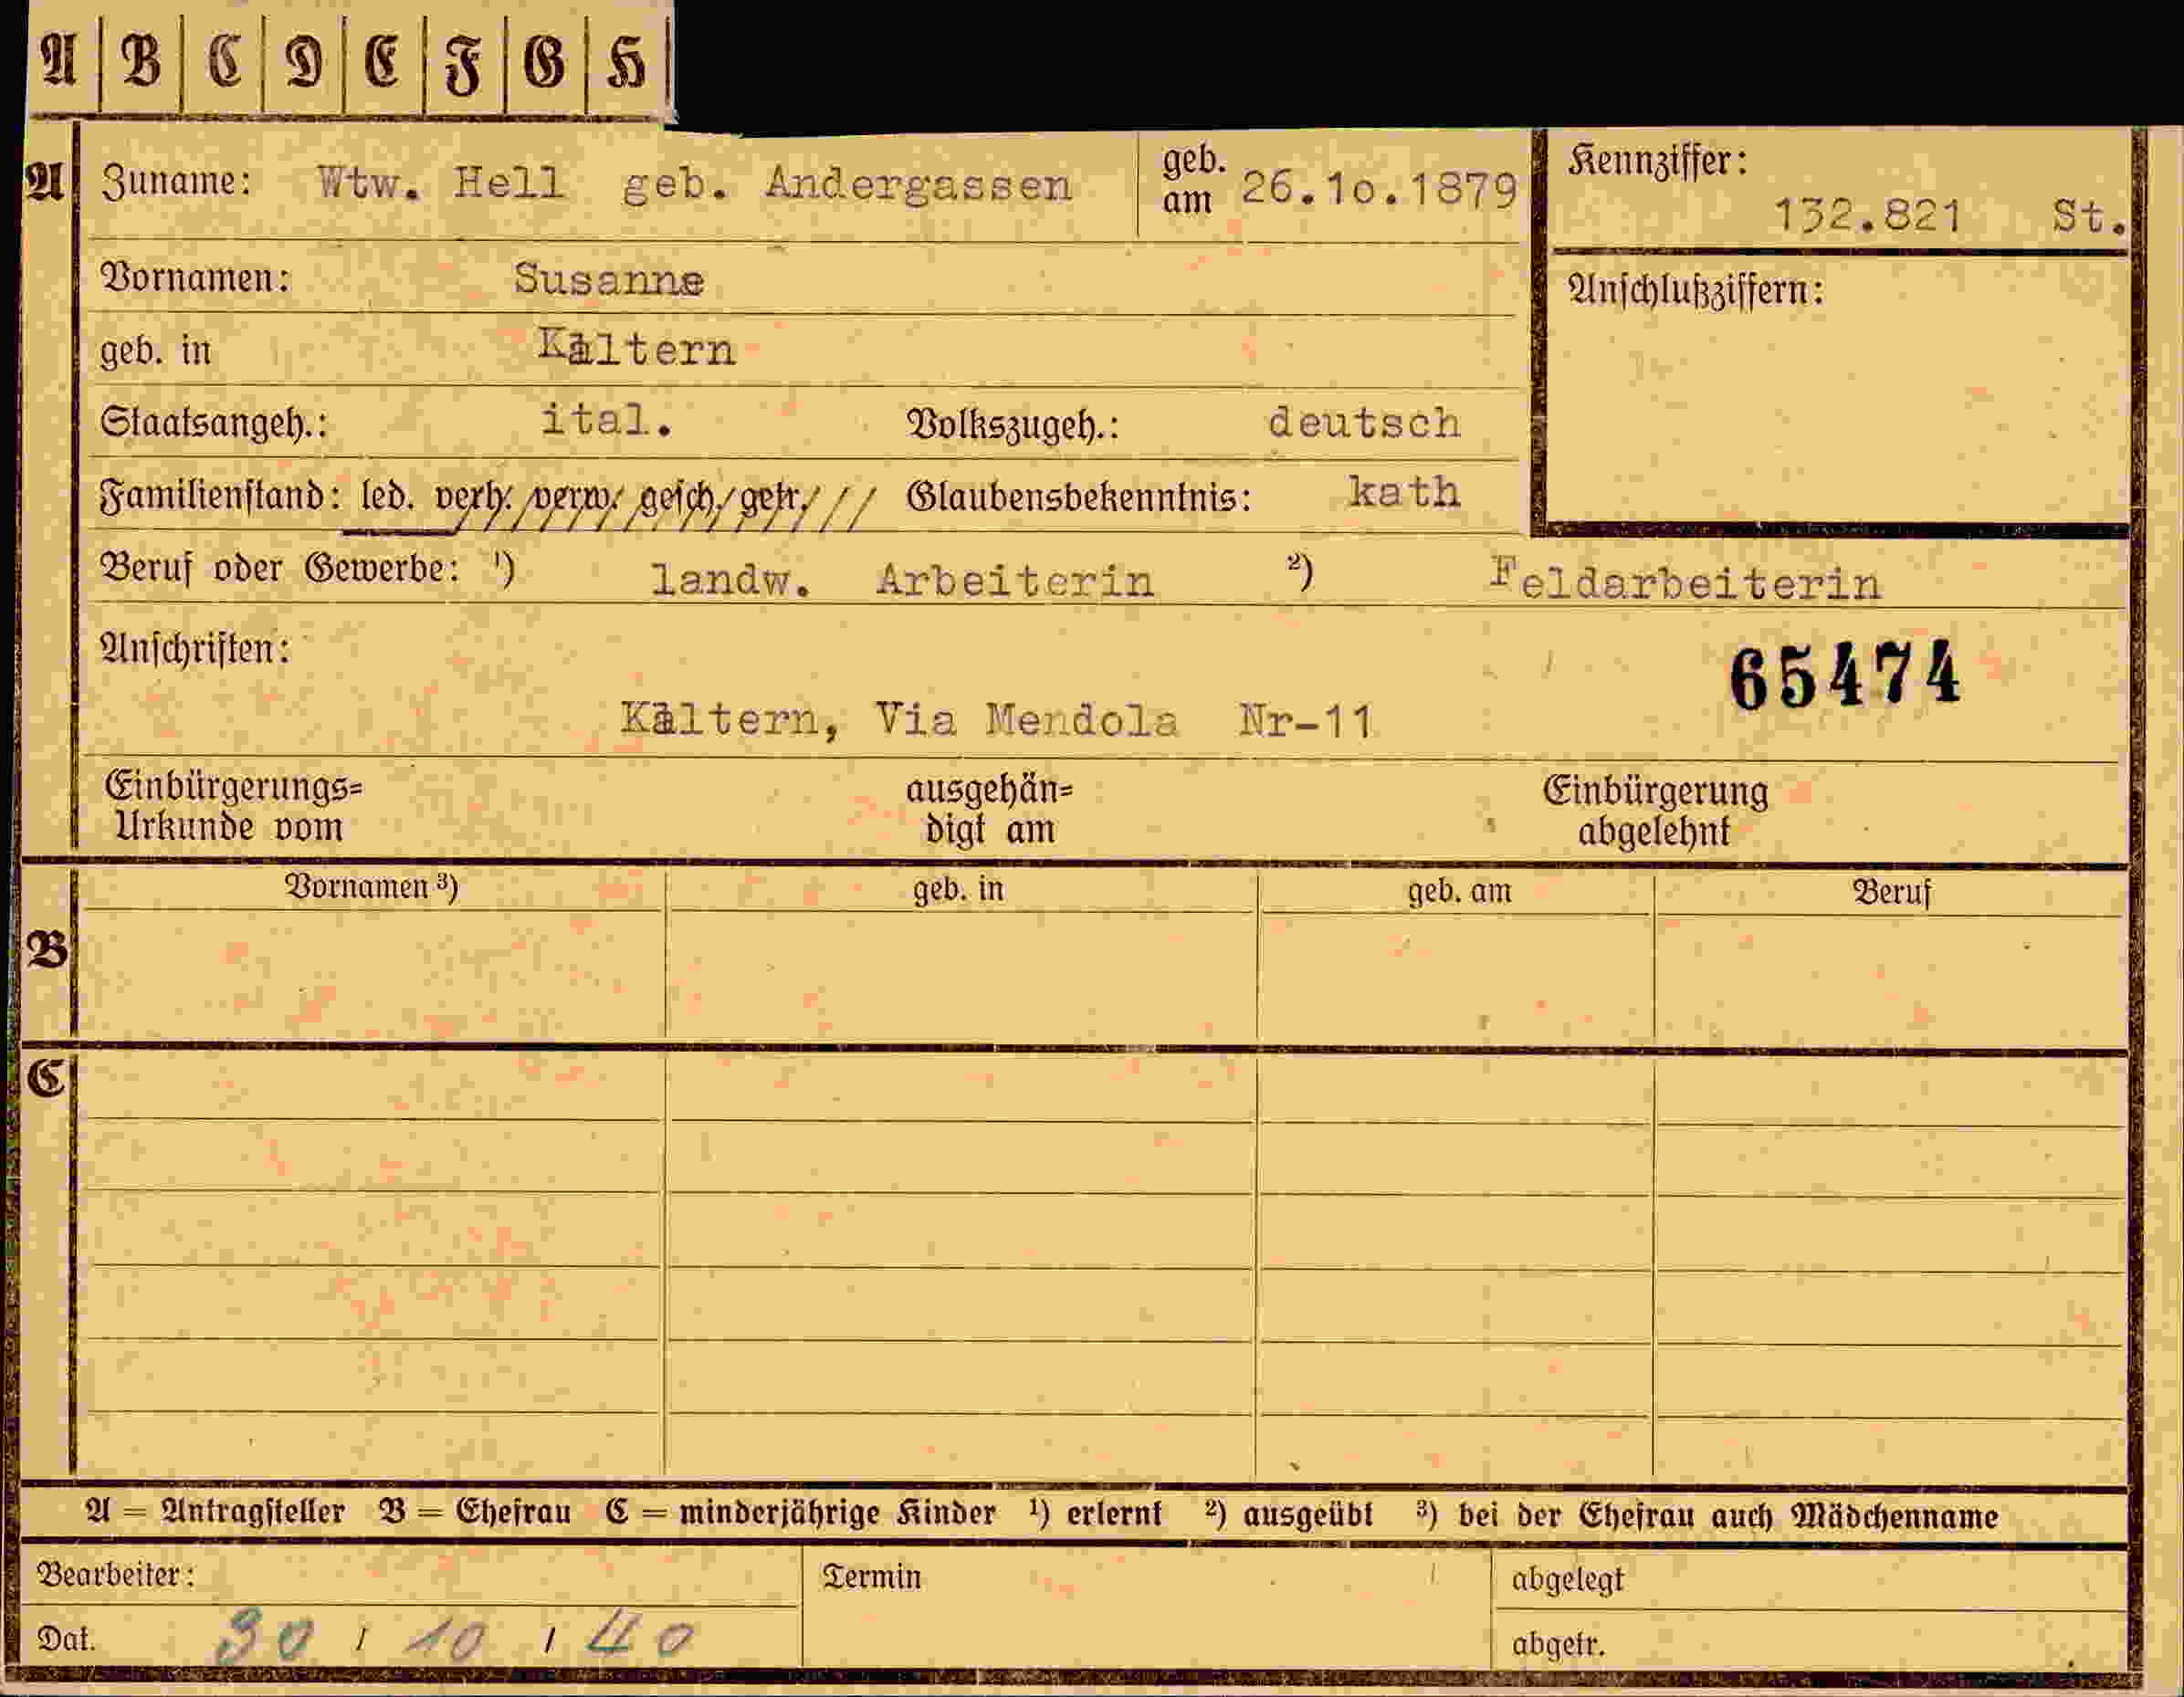 A B C D E F G H
A Zuname: Wtw. Hell geb. Andergassen geb. am 26.1o.1879 Kennziffer: 132.821 St.
Vornamen: Susanne Anschlußziffern:
geb. in Kaltern
Staatsangeh.: ital. Volkszugeh.: deutsch
Familienstand: led. verh. verw. gesch. getr. Glaubensbekenntnis: kath
Beruf oder Gewerbe: ¹) landw. Arbeiterin ²) Feldarbeiterin
Anschriften: 65474
Kaltern, Via Mendola Nr-11
Einbürgerungs= ausgehän= Einbürgerung
Urkunde vom digt am abgelehnt
Vornamen ³) geb. in geb. am Beruf
B
C
A = Antragsteller B = Ehefrau C = minderjährige Kinder ¹) erlernt ²) ausgeübt ³) bei der Ehefrau auch Mädchenname
Bearbeiter: Termin abgelegt
Dat. 30 / 10 / 40 abgetr.